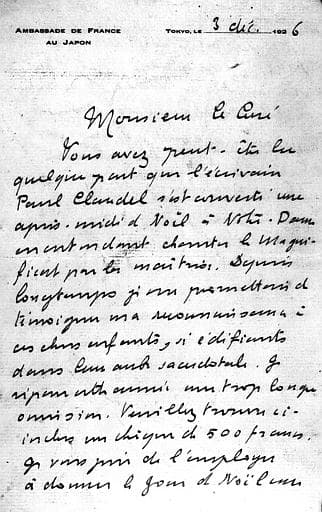 AMBASSADE DE FRANCE
AU JAPON
TOKYO, LE 3 déc. 1926
Monsieur le Curé
Vous avez peut-être lu
quelque part que l'écrivain
Paul Claudel s'est converti une
après-midi d Noël à Notre-Dame
en entendant chanter le Magni-
ficat par les maîtrises. Depuis
longtemps je me promettais de
témoigner ma reconnaissance à
ces chers enfants, si édifiants
dans leur aube sacerdotale. Je
répare cette année une trop longue
omission. Veuillez trouver ci-
inclus un chèque de 500 francs.
Je vous prie de l'employer
à donner le jour d Noël un